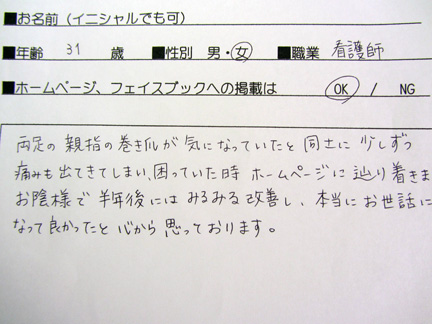 ■お名前（イニシャルでも可）
■年齢 31 歳 ■性別 男・女 ■職業 看護師
■ホームページ、フェイスブックへの掲載は OK / NG
両足の親指の巻き爪が気になっていたと同士に少しずつ
痛みも出てきてしまい、困っていた時ホームページに辿り着きま
お陰様で半年後にはみるみる改善し、本当にお世話に
なって良かったと心から思っております。